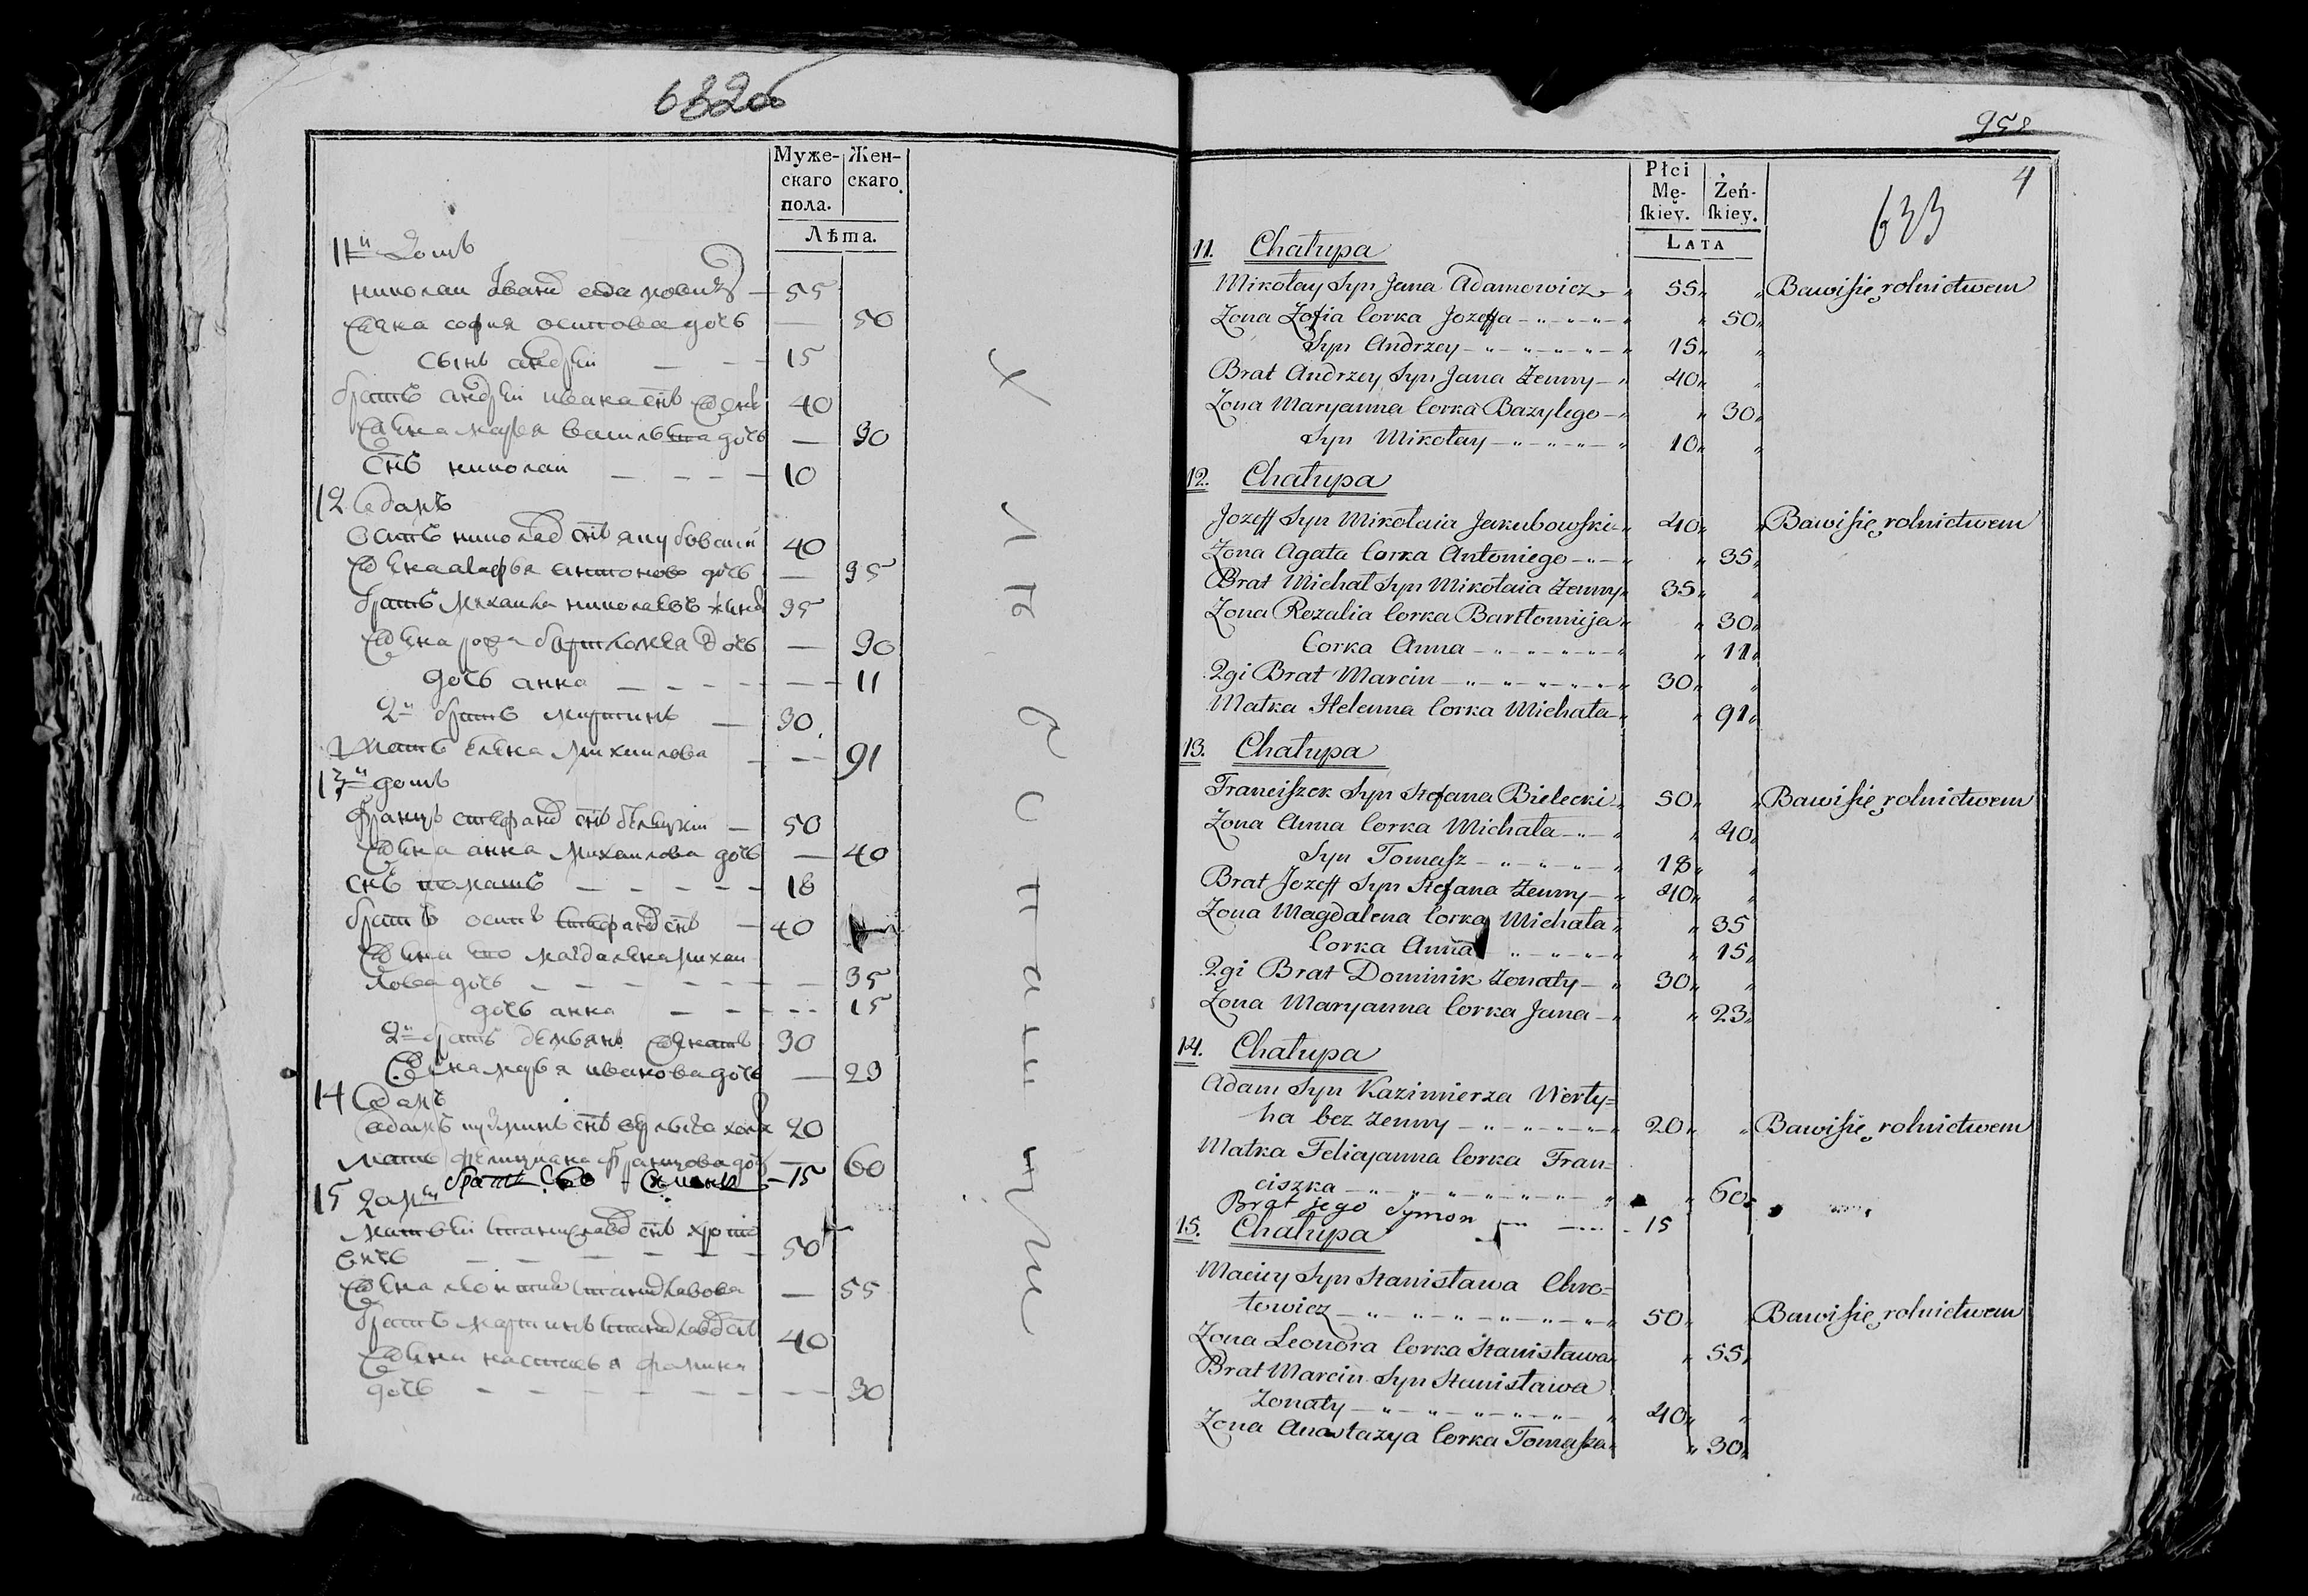 632об
Муже- Жен-
скаго скаго.
пола.
Лѣта.
11й домъ
николай Иванов сын Адамович — 55
Жена софия осипова дочь — 50
сынъ андрей — — 15
братъ андрей ивана снъ 40
Жена марья василева дочь — 30
снъ николай — — — — 10
12 домъ
осипъ николаев снъ якубовский 40
Жена агафья антонова дочь — 35
братъ михаила николаевъ 35
Жена бартломея дочь — 30
дочь анна — — — — — 11
2й братъ мартинъ — 30
Мать елена михаилова — 91
13й домъ
францъ стефанов снъ белецкий — 50
Жена анна михаилова дочь — 40
снъ томашъ — — — — — 18
братъ осипъ стефанов снъ — 40
Жена его магдалена михаи
лова дочь — — — — — — 35
дочь анна — — — — 15
2й братъ демьянъ женатъ 30
Жена марья иванова дочь — 23
14 домъ
адамъ снъ 20
мать фелициана францова дочь — 60
братъ его — 15
15 домъ
матвей станиславов снъ хрото
вичъ — — — — — 50
Жена станиславова — 55
братъ мартинъ станиславов снъ 40
Жена настасья фомина
дочь — — — — — — — — 30
хлебопашцы
958
4
633
Płci
Mę- Żeń-
skiey. skiey.
LATA
11. Chałupa
Mikołay Syn Jana Adamowicz „ 55„ „ Bawi się rolnictwem
Zona Zofia Corka Jozeffa - „ - „ - „ 50„
Syn Andrzey - „ - „ - „ - „ 15„ „
Brat Andrzey Syn Jana Zenny - „ 40„ „
Zona Maryanna Corka Bazylego - „ „ 30„
Syn Mikołay - „ - „ - „ 10„ „
12. Chałupa
Jozeff Syn Mikołaia Jakubowski „ 40„ „ Bawi się rolnictwem
Zona Agata Corka Antoniego - „ - „ 35„
Brat Michał Syn Mikołaia Zenny „ 35„ „
Zona Rozalia Corka Bartłomieja „ „ 30„
Corka Anna - „ - „ - „ - „ 11„
2gi Brat Marcin - „ - „ - „ - „ 30„ „
Matka Helenna Corka Michała „ „ 91„
13. Chałupa
Franciszek Syn Stefana Bielecki „ 50„ „ Bawi się rolnictwem
Zona Anna Corka Michała - „ - „ „ 40„
Syn Tomasz - „ - „ - „ 18„ „
Brat Jozeff Syn Stefana Zenny - „ 40„ „
Zona Magdalena Corka Michała „ „ 35
Corka Anna „ - „ - „ „ 15„
2gi Brat Dominik Zonaty - „ 30„ „
Zona Maryanna Corka Jana - „ „ 23„
14. Chałupa
Adam Syn Kazimierza Werty=
ha bez zenny - „ - „ - „ - „ 20„ „ Bawi się rolnictwem
Matka Felicyanna Corka Fran=
ciszka - „ - „ - „ - „ - „ „ 60„
Brat jego Symon — — 15
15. Chałupa
Maciey Syn Stanisława Chro=
towicz - „ - „ - „ - „ - „ 50„ „ Bawi się rolnictwem
Zona Leonora Corka Stanisława „ „ 55„
Brat Marcin Syn Stanisława
Zonaty - „ - „ - „ - „ - „ 40„ „
Zona Anastazya Corka Tomasza „ „ 30„